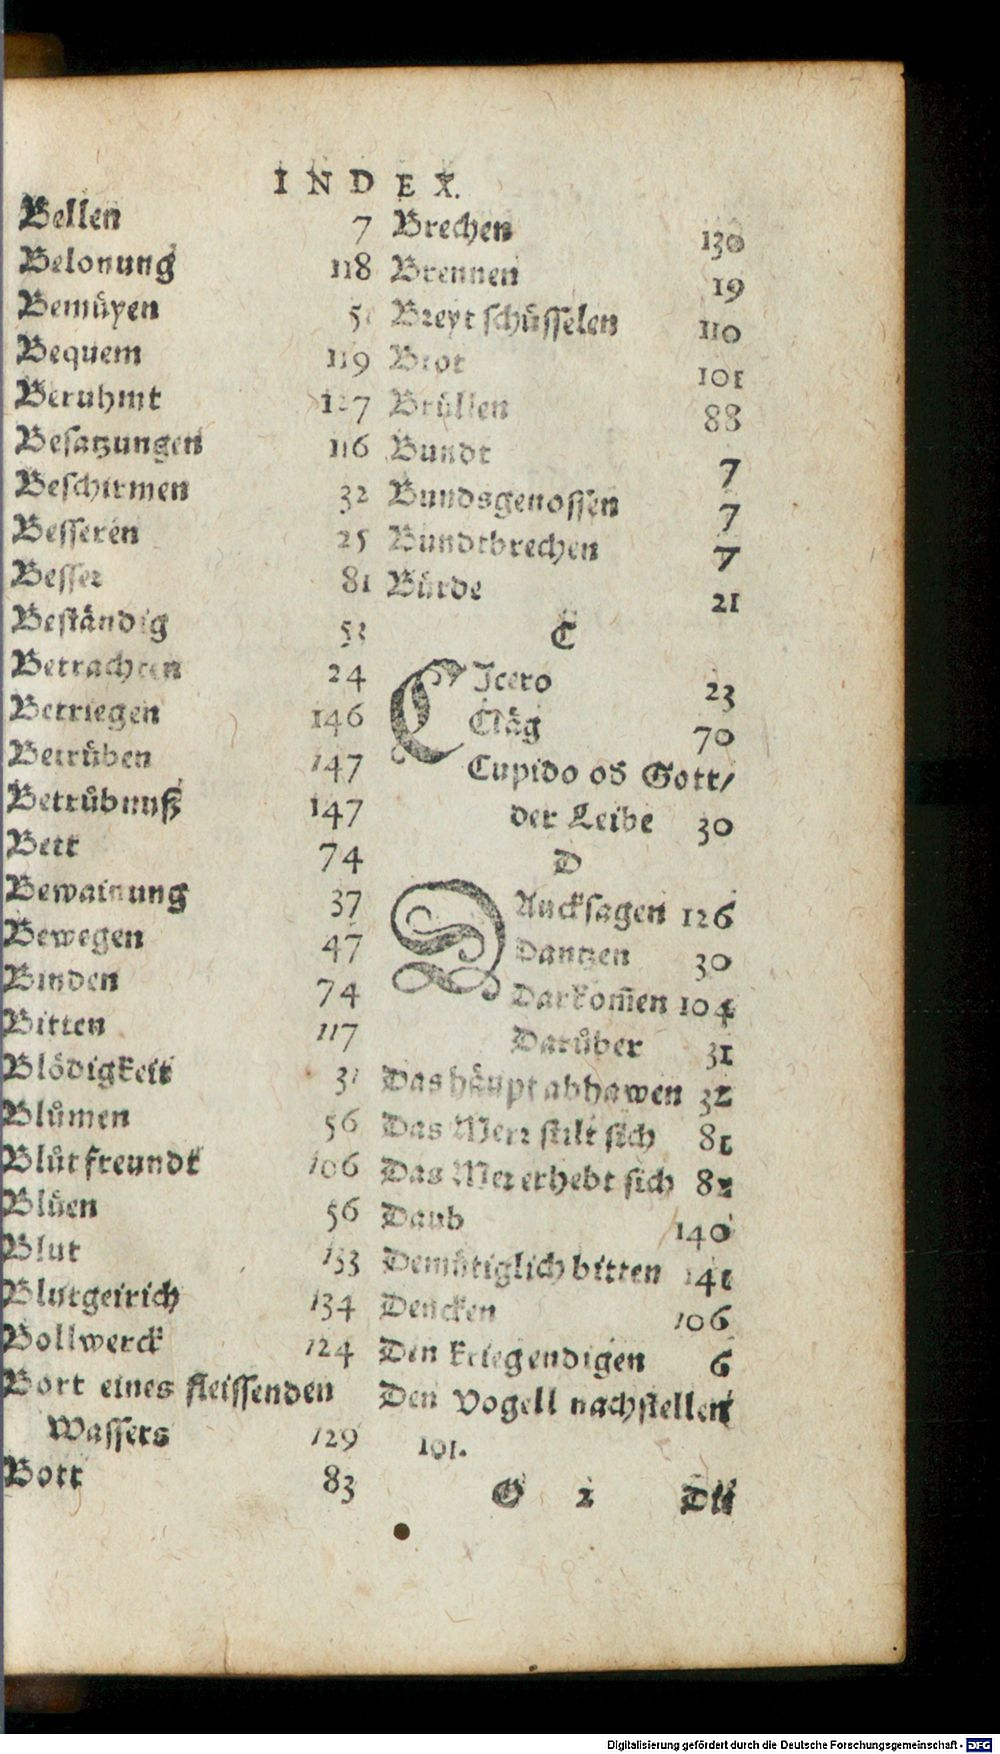 INDEX.
Bellen 7
Belonung 118
Bemüyen
Bequem 119
Beruhmt 127
Besatzungen 116
Beschirmen 32
Besseren 25
Besser 81
Beständig
Betrachten 24
Betriegen 146
Betrüben 147
Betrübnuß 147
Bett 74
Bewainung 37
Bewegen 47
Binden 74
Bitten 117
Blödigkeit 31
Blůmen 56
Blůtfreundt 106
Blüen 56
Blut 133
Blutgeirich 134
Bollwerck 124
Bort eines fleissenden
Wassers 129
Bott 83
Brechen 130
Brennen 19
Breyt schüsselen 110
Brot 101
Brüllen 88
Bundt 7
Bundsgenossen 7
Bundtbrechen 7
Bürde 21
C
CIcero 23
Cläg 70
Cupido os Gott/
der Leibe 30
D
DAncksagen 126
Dantzen 30
Darkom̃en 104
Darüber 31
Das häupt abhawen 32
Das Meer stilt sich 81
Das Mer erhebt sich 82
Daub 140
Demütiglich bitten 141
Dencken 106
Den krieg endigen 6
Den Vogell nachstellen
101.
G 2 Die
Digitalisierung gefördert durch die Deutsche Forschungsgemeinschaft - DFG